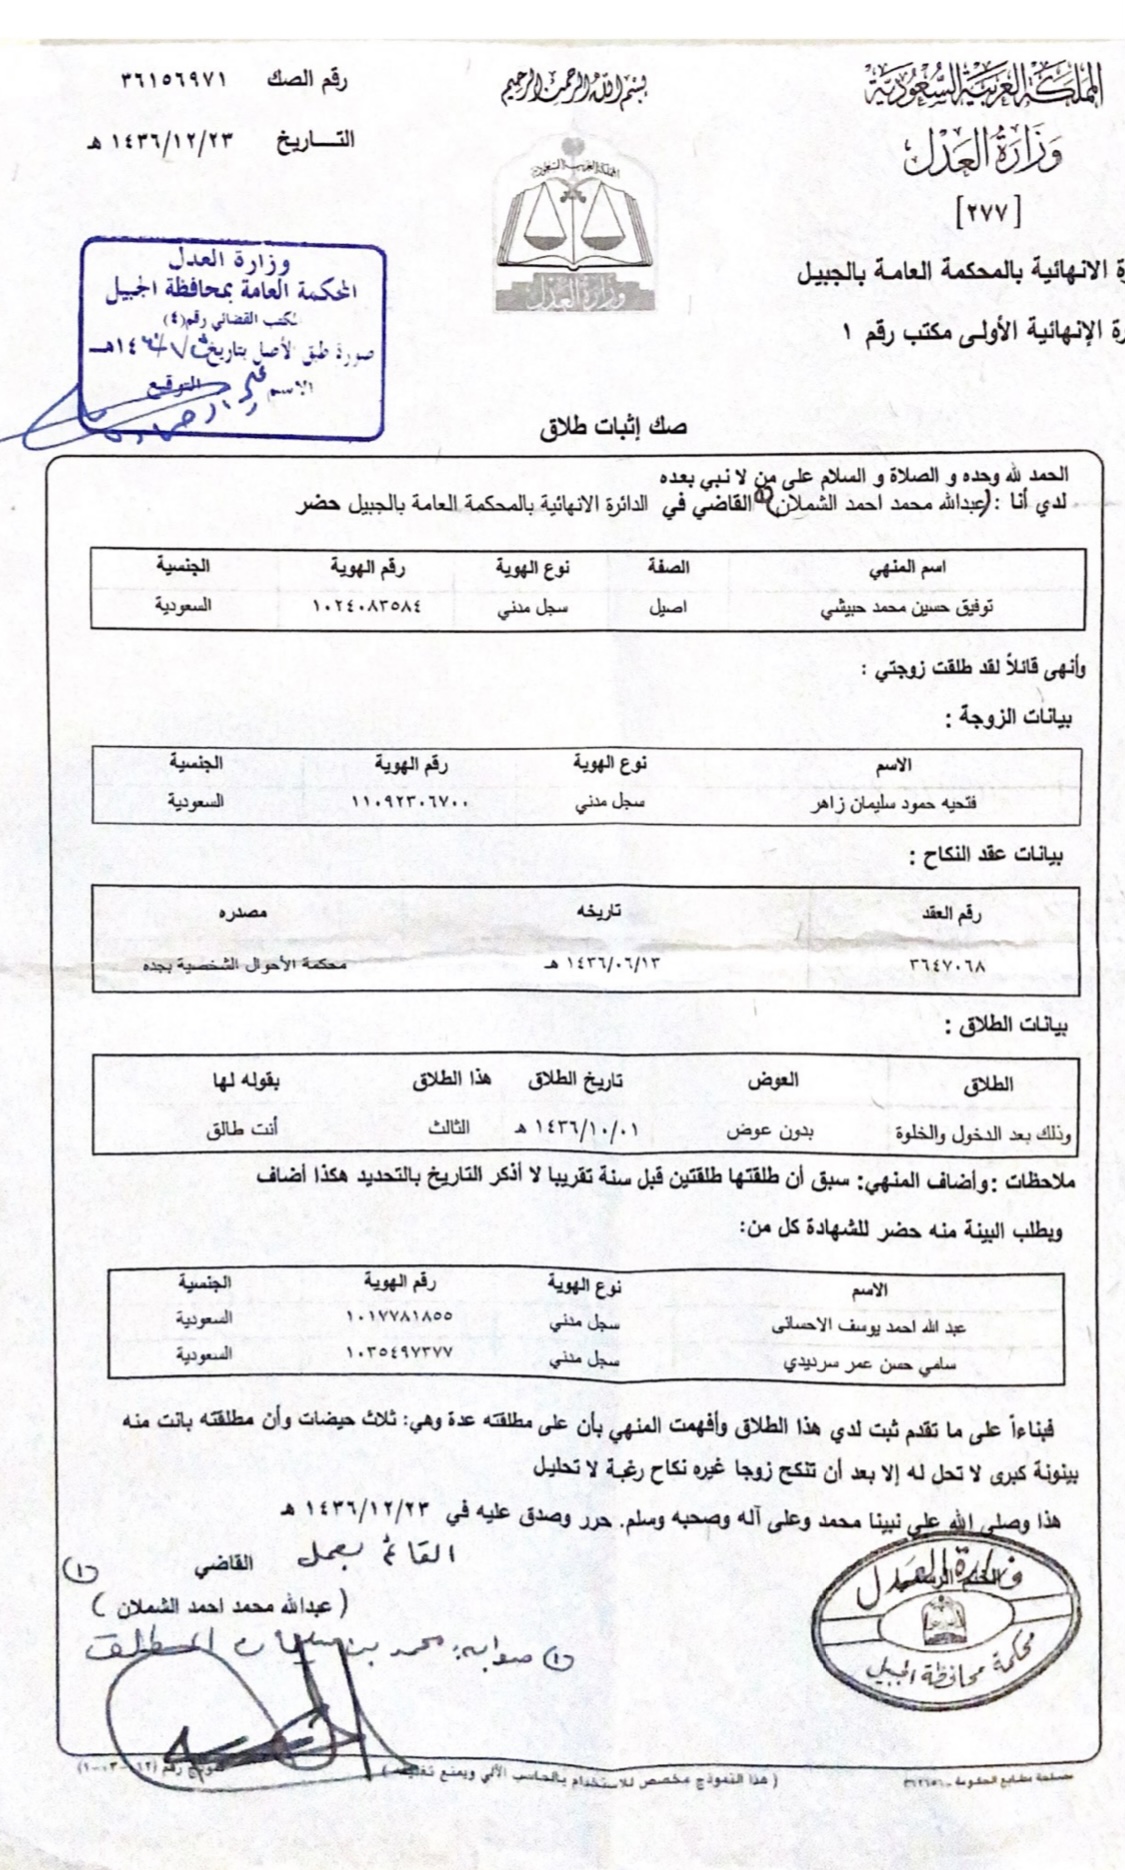 المملكة العربية السعودية
وزارة العدل
[٢٧٧]
الانهائية بالمحكمة العامة بالجبيل
الإنهائية الأولى مكتب رقم ١
بسم الله الرحمن الرحيم
المملكة العربية السعودية
وزارة العدل
رقم الصك ٣٦١٥٦٩٧١
التـــاريخ ١٤٣٦/١٢/٢٣ هـ
وزارة العدل
المحكمة العامة بمحافظة الجبيل
المكتب القضائي رقم (٤)
صورة طبق الأصل بتاريخ
الاسم التوقيع
صك إثبات طلاق
الحمد لله وحده و الصلاة و السلام على من لا نبي بعده
لدي أنا : (عبدالله محمد احمد الشملان) القاضي في الدائرة الانهائية بالمحكمة العامة بالجبيل حضر
اسم المنهي الصفة نوع الهوية رقم الهوية الجنسية
توفيق حسين محمد حبيشي اصيل سجل مدني ١٠٢٤٠٨٣٥٨٤ السعودية
وأنهى قائلاً لقد طلقت زوجتي :
بيانات الزوجة :
الاسم نوع الهوية رقم الهوية الجنسية
فتحيه حمود سليمان زاهر سجل مدني ١١٠٩٢٣٠٦٧٠٠ السعودية
بيانات عقد النكاح :
رقم العقد تاريخه مصدره
٣٦٤٧٠٦٨ ١٤٣٦/٠٦/١٣ هـ محكمة الأحوال الشخصية بجده
بيانات الطلاق :
الطلاق العوض تاريخ الطلاق هذا الطلاق بقوله لها
وذلك بعد الدخول والخلوة بدون عوض ١٤٣٦/١٠/٠١ هـ الثالث أنت طالق
ملاحظات :وأضاف المنهي: سبق أن طلقتها طلقتين قبل سنة تقريبا لا أذكر التاريخ بالتحديد هكذا أضاف
وبطلب البينة منه حضر للشهادة كل من:
الاسم نوع الهوية رقم الهوية الجنسية
عبد الله احمد يوسف الاحسائى سجل مدني ١٠١٧٧٨١٨٥٥ السعودية
سامي حسن عمر سرديدي سجل مدني ١٠٣٥٤٩٧٣٧٧ السعودية
فبناءاً على ما تقدم ثبت لدي هذا الطلاق وأفهمت المنهي بأن على مطلقته عدة وهي: ثلاث حيضات وأن مطلقته بانت منه
بينونة كبرى لا تحل له إلا بعد أن تنكح زوجا غيره نكاح رغبة لا تحليل
هذا وصلى الله على نبينا محمد وعلى آله وصحبه وسلم. حرر وصدق عليه في ١٤٣٦/١٢/٢٣ هـ
القائم بعمل القاضي (١)
(عبدالله محمد احمد الشملان)
(١) صوابه: محمد بن سليمان المطلق
وزارة العدل
محكمة محافظة الجبيل
مصلحة مطابع الحكومة
(هذا النموذج مخصص للاستخدام بالحاسب الآلي ويمنع تغليفه)
نموذج رقم